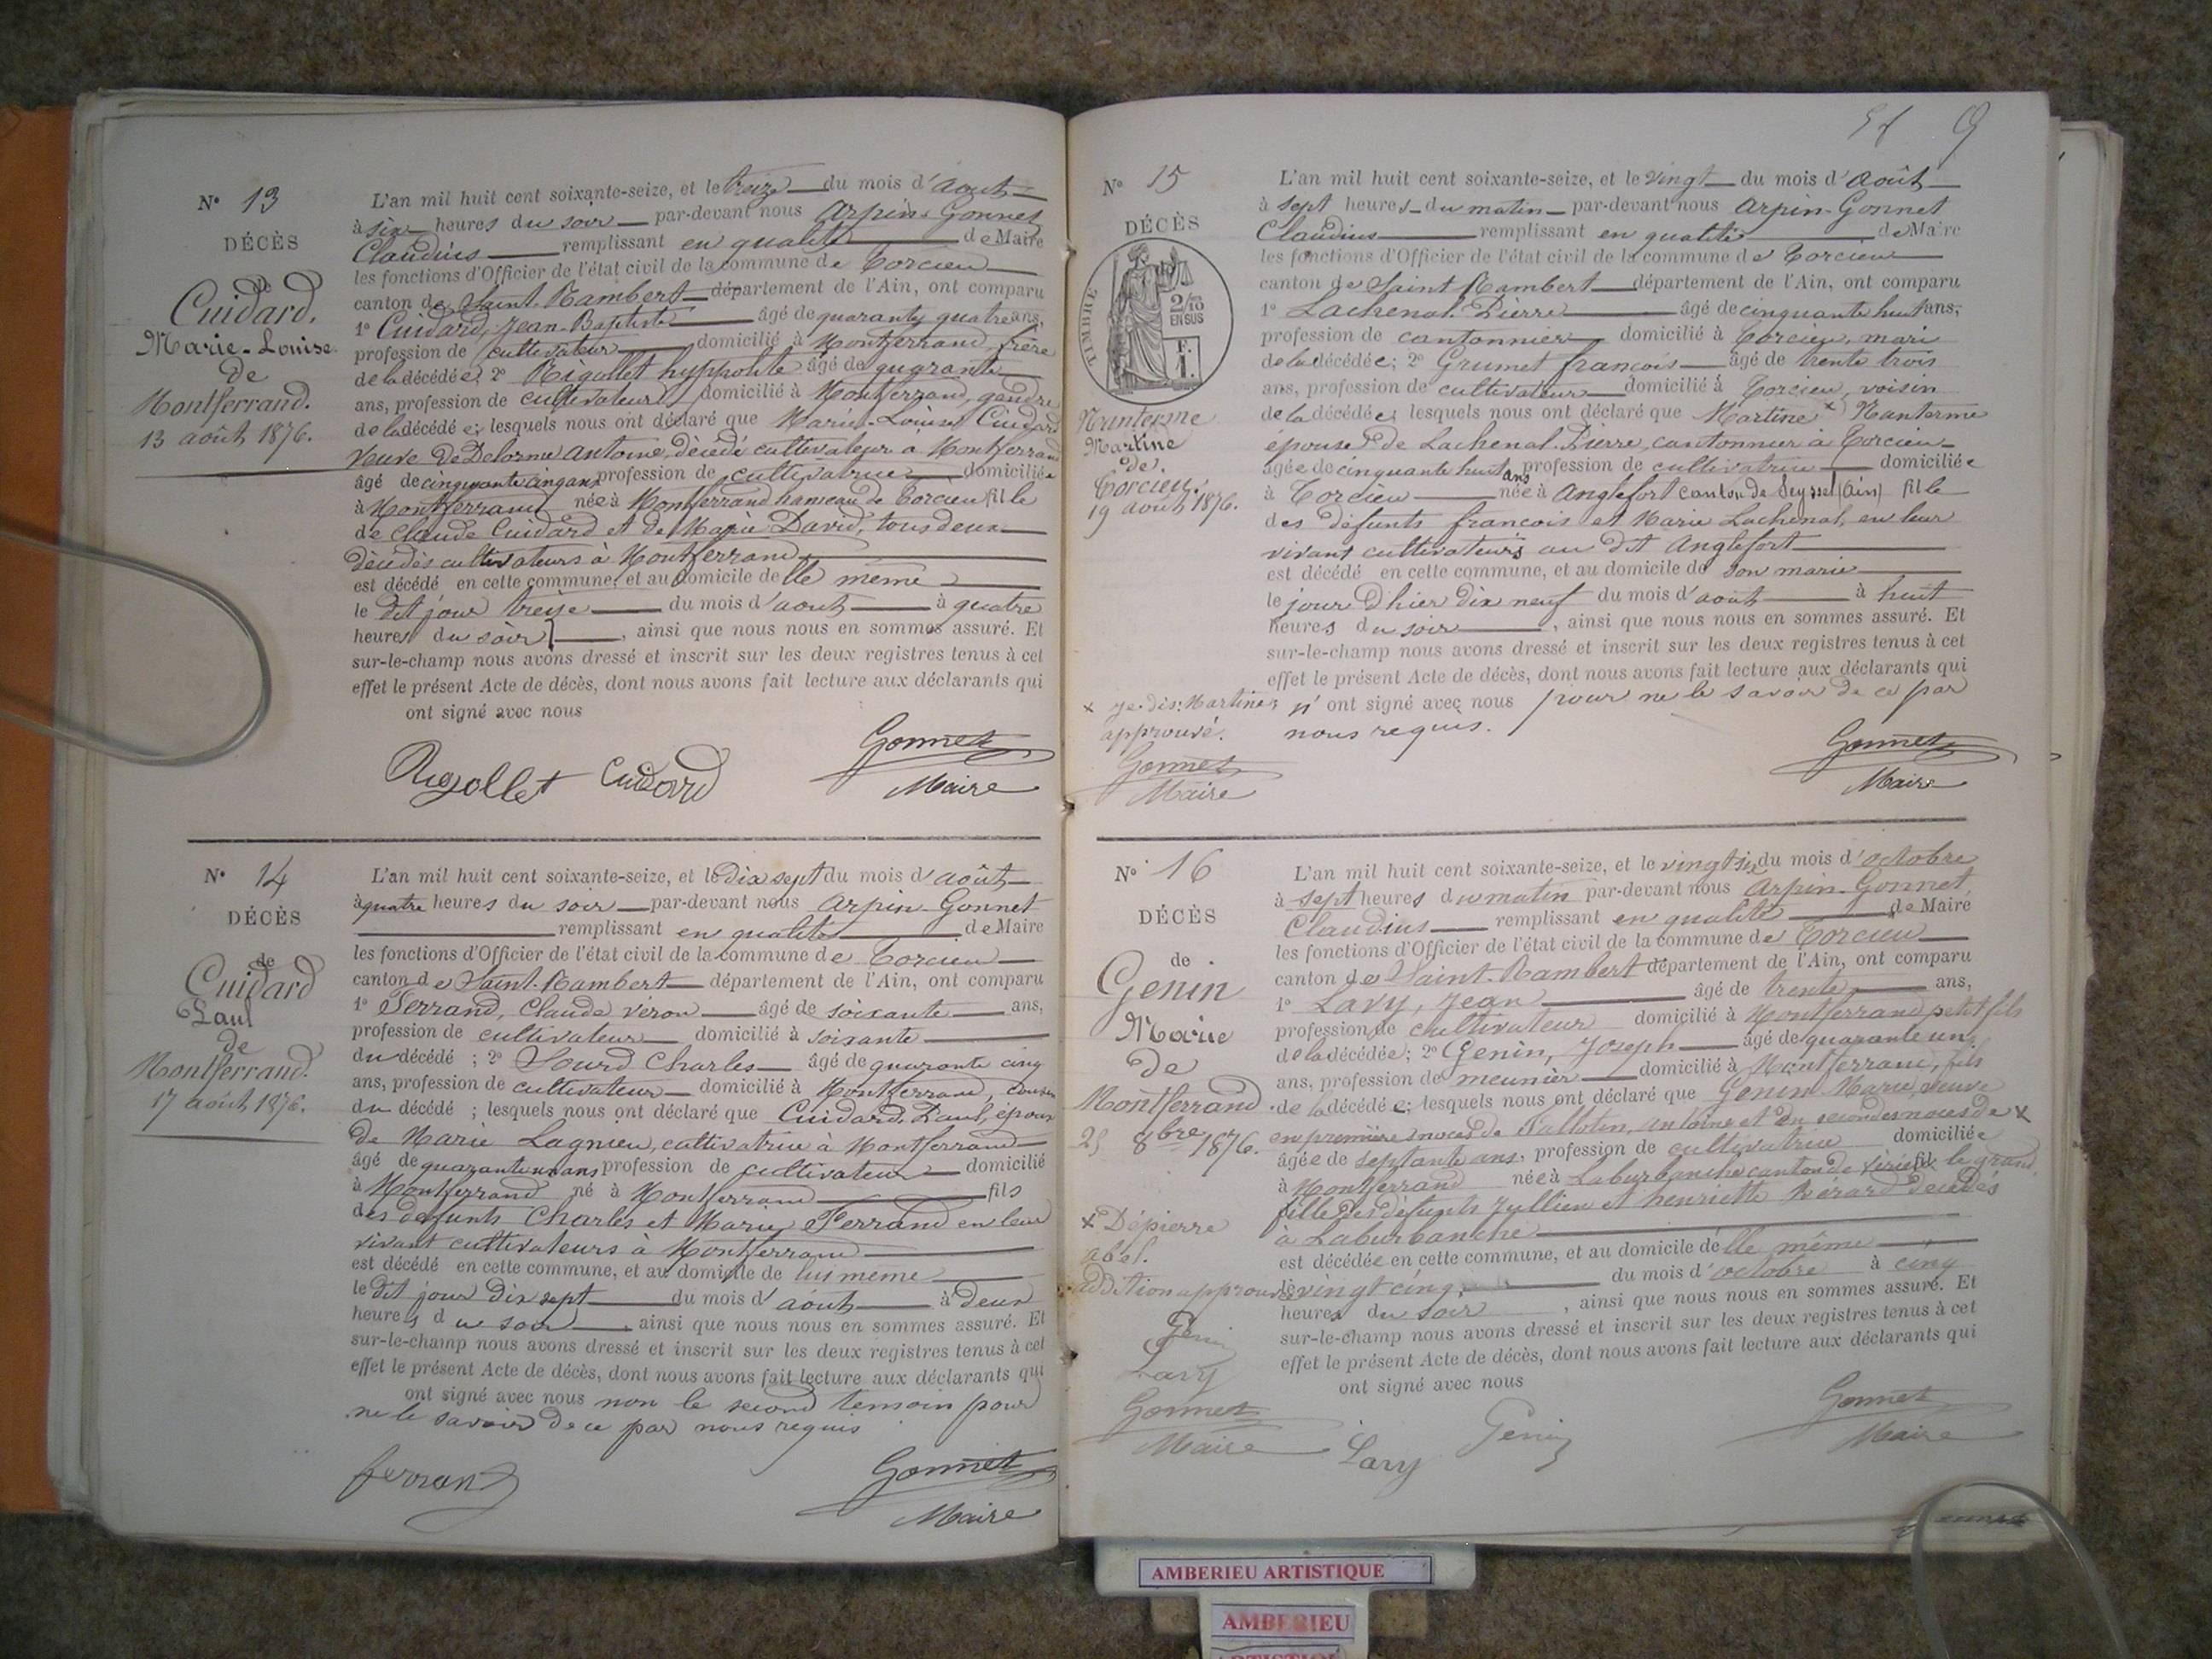 N° 13
DÉCÈS
de
Cuidard,
Marie-Louise
de
Montferrand.
13 août 1876.
L'an mil huit cent soixante-seize, et le treize du mois d'août
à six heures du soir par-devant nous Arpin-Gonnet
Claudius remplissant en qualité de Maire
les fonctions d'Officier de l'état civil de la commune de Torcieu
canton de Saint-Rambert département de l'Ain, ont comparu
1° Cuidard, Jean-Baptiste âgé de quarante quatre ans,
profession de cultivateur domicilié à Montferrand, frère
de la décédée; 2° Rigollet hyppolite âgé de quarante
ans, profession de cultivateur domicilié à Montferrand, gendre
de la décédée; lesquels nous ont déclaré que Marie-Louise Cuidard
veuve de Delorme Antoine, décédé cultivateur à Montferrand
âgé de cinquante cinq ans profession de cultivatrice domiciliée
à Montferrand née à Montferrand hameau de Torcieu fille
de Claude Cuidard et de Marie David, tous deux
décédés cultivateurs à Montferrand
est décédé en cette commune, et au domicile de elle même
le dit jour treize du mois d'août à quatre
heures du soir, ainsi que nous nous en sommes assuré. Et
sur-le-champ nous avons dressé et inscrit sur les deux registres tenus à cet
effet le présent Acte de décès, dont nous avons fait lecture aux déclarants qui
ont signé avec nous
Rigollet Cuidard Gonnet
Maire
N° 14
DÉCÈS
de
Cuidard
Paul
de
Montferrand.
17 août 1876.
L'an mil huit cent soixante-seize, et le dix sept du mois d'août
à quatre heures du soir par-devant nous Arpin-Gonnet
remplissant en qualité de Maire
les fonctions d'Officier de l'état civil de la commune de Torcieu
canton de Saint-Rambert département de l'Ain, ont comparu
1° Ferrand, Claude véron âgé de soixante ans,
profession de cultivateur domicilié à soixante
du décédé ; 2° Sourd Charles âgé de quarante cinq
ans, profession de cultivateur domicilié à Montferrand, cousin
du décédé ; lesquels nous ont déclaré que Cuidard, Paul, époux
de Marie Lagnieu, cultivatrice à Montferrand
âgé de quarante un ans profession de cultivateur domicilié
à Montferrand né à Montferrand fils
des défunts Charles et Marie Ferrand en leur
vivant cultivateurs à Montferrand
est décédé en cette commune, et au domicile de lui même
le dit jour dix sept du mois d'août à deux
heures du soir, ainsi que nous nous en sommes assuré. Et
sur-le-champ nous avons dressé et inscrit sur les deux registres tenus à cet
effet le présent Acte de décès, dont nous avons fait lecture aux déclarants qui
ont signé avec nous non le second temoin pour
ne le savoir de ce par nous requis
ferrand Gonnet
Maire
9
N° 15
DÉCÈS
TIMBRE
2/10
EN SUS
F.
1.
Nanterme
Martine
de
Torcieu.
19 août 1876.
L'an mil huit cent soixante-seize, et le vingt du mois d'août
à sept heures du matin par-devant nous Arpin-Gonnet
Claudius remplissant en qualité de Maire
les fonctions d'Officier de l'état civil de la commune de Torcieu
canton de Saint Rambert département de l'Ain, ont comparu
1° Lachenal Pierre âgé de cinquante huit ans,
profession de cantonnier domicilié à Torcieu, mari
de la décédée; 2° Grumet françois âgé de trente trois
ans, profession de cultivateur domicilié à Torcieu, voisin
de la décédée; lesquels nous ont déclaré que Martine x Nanterme
épouse de Lachenal Pierre, cantonnier à Torcieu
âgée de cinquante huit ans profession de cultivatrice domiciliée
à Torcieu née à Anglefort canton de Seyssel (Ain) fille
des défunts francois et Marie Lachenal, en leur
vivant cultivateurs au dit Anglefort
est décédé en cette commune, et au domicile de son marie
le jour d'hier dix neuf du mois d'août à huit
heures du soir, ainsi que nous nous en sommes assuré. Et
sur-le-champ nous avons dressé et inscrit sur les deux registres tenus à cet
effet le présent Acte de décès, dont nous avons fait lecture aux déclarants qui
n'ont signé avec nous pour ne le savoir de ce par
nous requis.
x je dis: Martine
approuvé.
Gonnet
Maire
Gonnet
Maire
N° 16
DÉCÈS
de
Genin
Marie
de
Montferrand.
25 8bre 1876.
L'an mil huit cent soixante-seize, et le vingt six du mois d'octobre
à sept heures du matin par-devant nous Arpin-Gonnet,
Claudius remplissant en qualité de Maire
les fonctions d'Officier de l'état civil de la commune de Torcieu
canton de Saint-Rambert département de l'Ain, ont comparu
1° Lavy, Jean âgé de trente ans,
profession de cultivateur domicilié à Montferrand petit fils
de la décédée; 2° Genin, Joseph âgé de quarante un
ans, profession de meunier domicilié à Montferrand, fils
de la décédée; lesquels nous ont déclaré que Genin Marie, veuve
en premières noces de Tallotin, antoine et en secondes noces de x
âgée de septante ans, profession de cultivatrice domiciliée
à Montferrand née à Laburbanche canton de virieu le grand
fille des défunts Jullien et henriette Bérard décédés
à Laburbanche
est décédée en cette commune, et au domicile de elle même
le vingt cinq, du mois d'octobre à cinq
heures du soir, ainsi que nous nous en sommes assuré. Et
sur-le-champ nous avons dressé et inscrit sur les deux registres tenus à cet
effet le présent Acte de décès, dont nous avons fait lecture aux déclarants qui
ont signé avec nous
x Dépierre
abel.
addition approuvée
Genin
Lavy
Gonnet
Maire
Lavy Genin Gonnet
Maire
AMBERIEU ARTISTIQUE
AMBERIEU
ARTISTIQUE